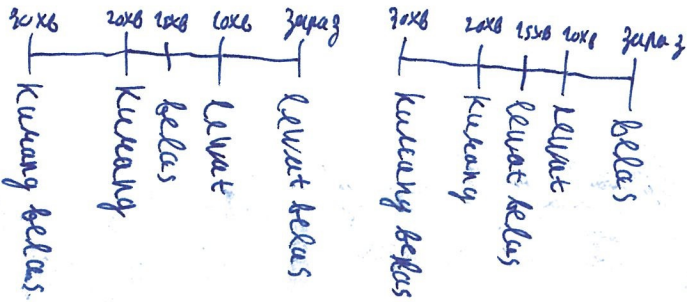 30хв 20хв 15хв 10хв Зараз
kurang belas
kurang
belas
lewat
lewat belas
30хв 20хв 15хв 10хв Зараз
kurang belas
kurang
lewat belas
lewat
belas